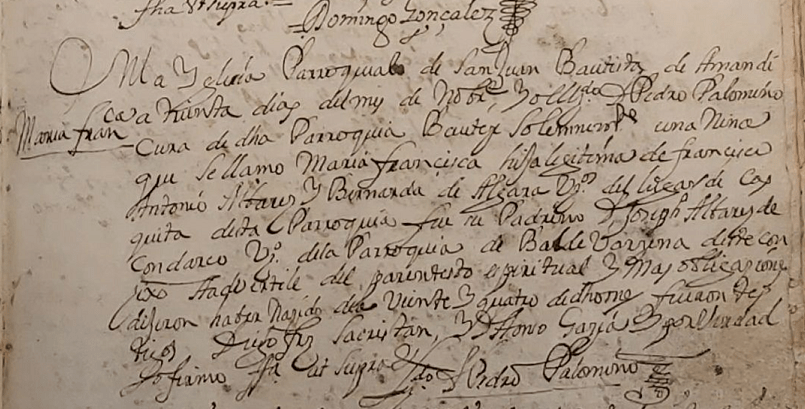 fha Ut supra.=
=Domingo Gonçalez
En la Yglesia Parroquial de San Juan Bautista de Amandi
Maria Franca
a treinta dias del mes de Nobre, Yo el Lizdo D Pedro Palomino
Cura de dha Parroquia Bautize Solemnemte una Niña
que se llamo Maria francisca hija legitima de francisco
Antonio Albares Y Bernarda de Algara Vos del lugar de Cas
quita desta Parroquia fue su Padrino D Joseph Albares de
Condarco Vo. dela Parroquia de Balde Varzena deste con
zexo Aduertile del parentesto espiritual Y Mas obligaziones
dijeron haber Nazido dia Veinte Y quatro de dho mes fueron tes
tigos Diego frz Sacristan, Y Alonso Garzia Y por Verdad
lo firmo fha ut supra
Lzdo D Pedro Palomino